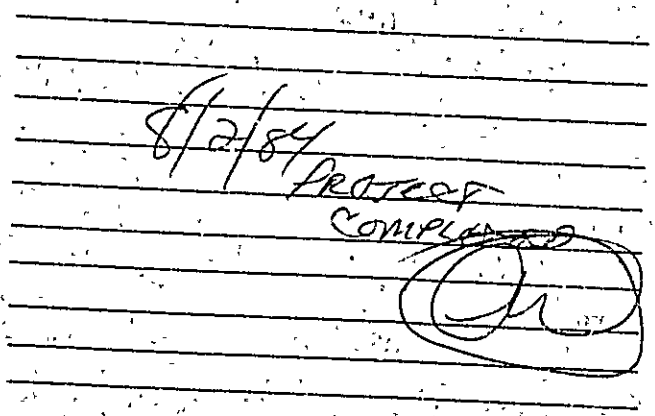 8/2/84
PROJECT
COMPLETED